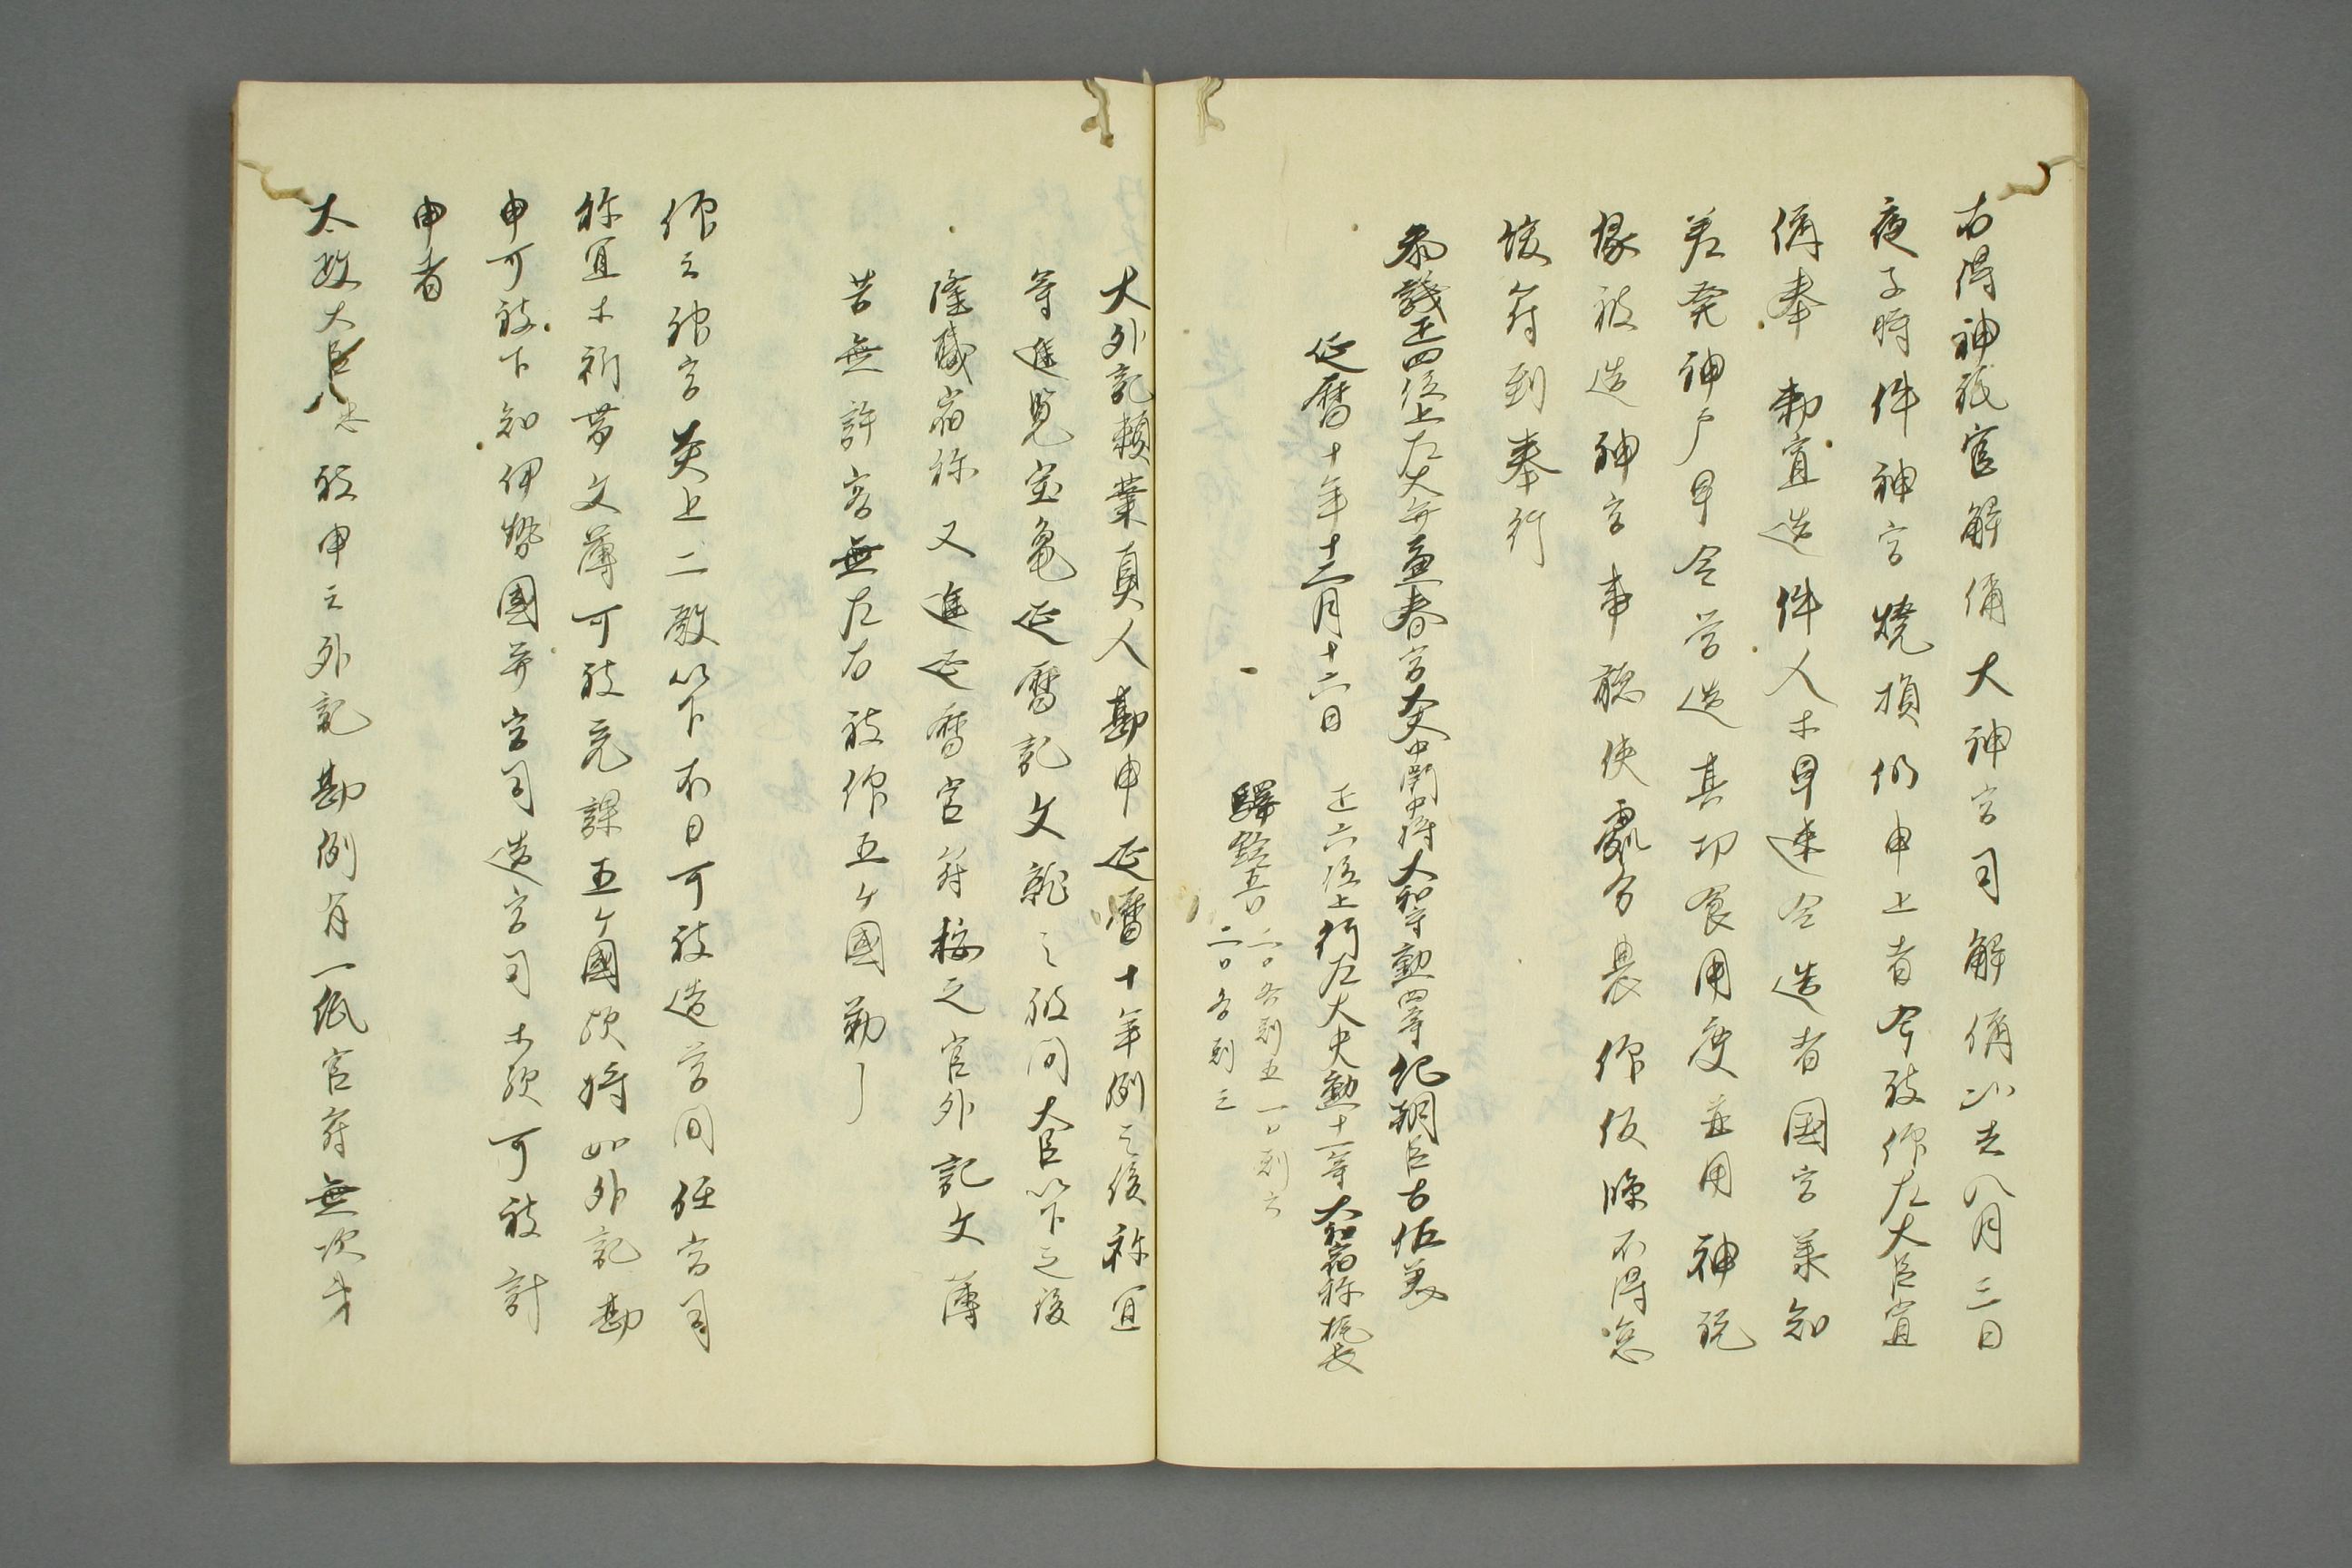 右得神祇官解偁大神宮司解偁以去八月三日
夜子時件神宮焼損仍申上者今被仰左大臣宣
偁奉　勅宣造件人木早速令造者国宮兼知
差発神戸早令営造其功食用度並用神税
縁被造神宮事聴使処分畏仰仮険不得怠
後符到奉行
参議正四位上左大弁兼春宮大夫中衛中将大和守勲四等紀朝臣古佐美
延暦十年十二月十六日　正六位上行左大史勲十一等大和宿祢
駅鈴二口　二口各剋五　一口剋六
二口各剋三
大外記頼業真人勘申延暦十年例之後祢宜
等進覧宝亀延暦記文就之被問大臣以下之後
隆職宿祢又進延暦官符検之官外記文簿
若無許容無左右被仰五ヶ國勤了
仰云神宮炎上二殿以下不日可被造営間任宮司
祢宜木所帯文簿可被充課五ヶ國次將如外記勘
申可被下知伊勢國并宮司造宮司木歟可被計
申者
太政大臣忠　被申云外記勘例有一紙官符無次第